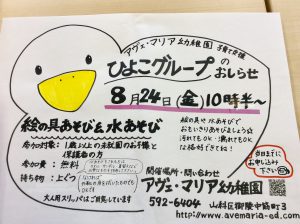 アヴェ・マリア幼稚園 子育て支援
ひよこグループの
おしらせ
8月24日(金)10時半～
絵の具あそび&水あそび
参加対象:1歳以上の未就園のお子様と
保護者の方
参加費:無料
持ち物:上ぐつ
大人用スリッパはご用意しています
絵の具や水あそびで
おもいきりあそびましょう
汚れてもOK!濡れてもOK
は格好できてね!
前日までに
お申し込み
下さい
開催場所・問い合わせ
アヴェ・マリア幼稚園
592-6404
山科区御陵中筋町3
http://www.avemaria-ed.com/